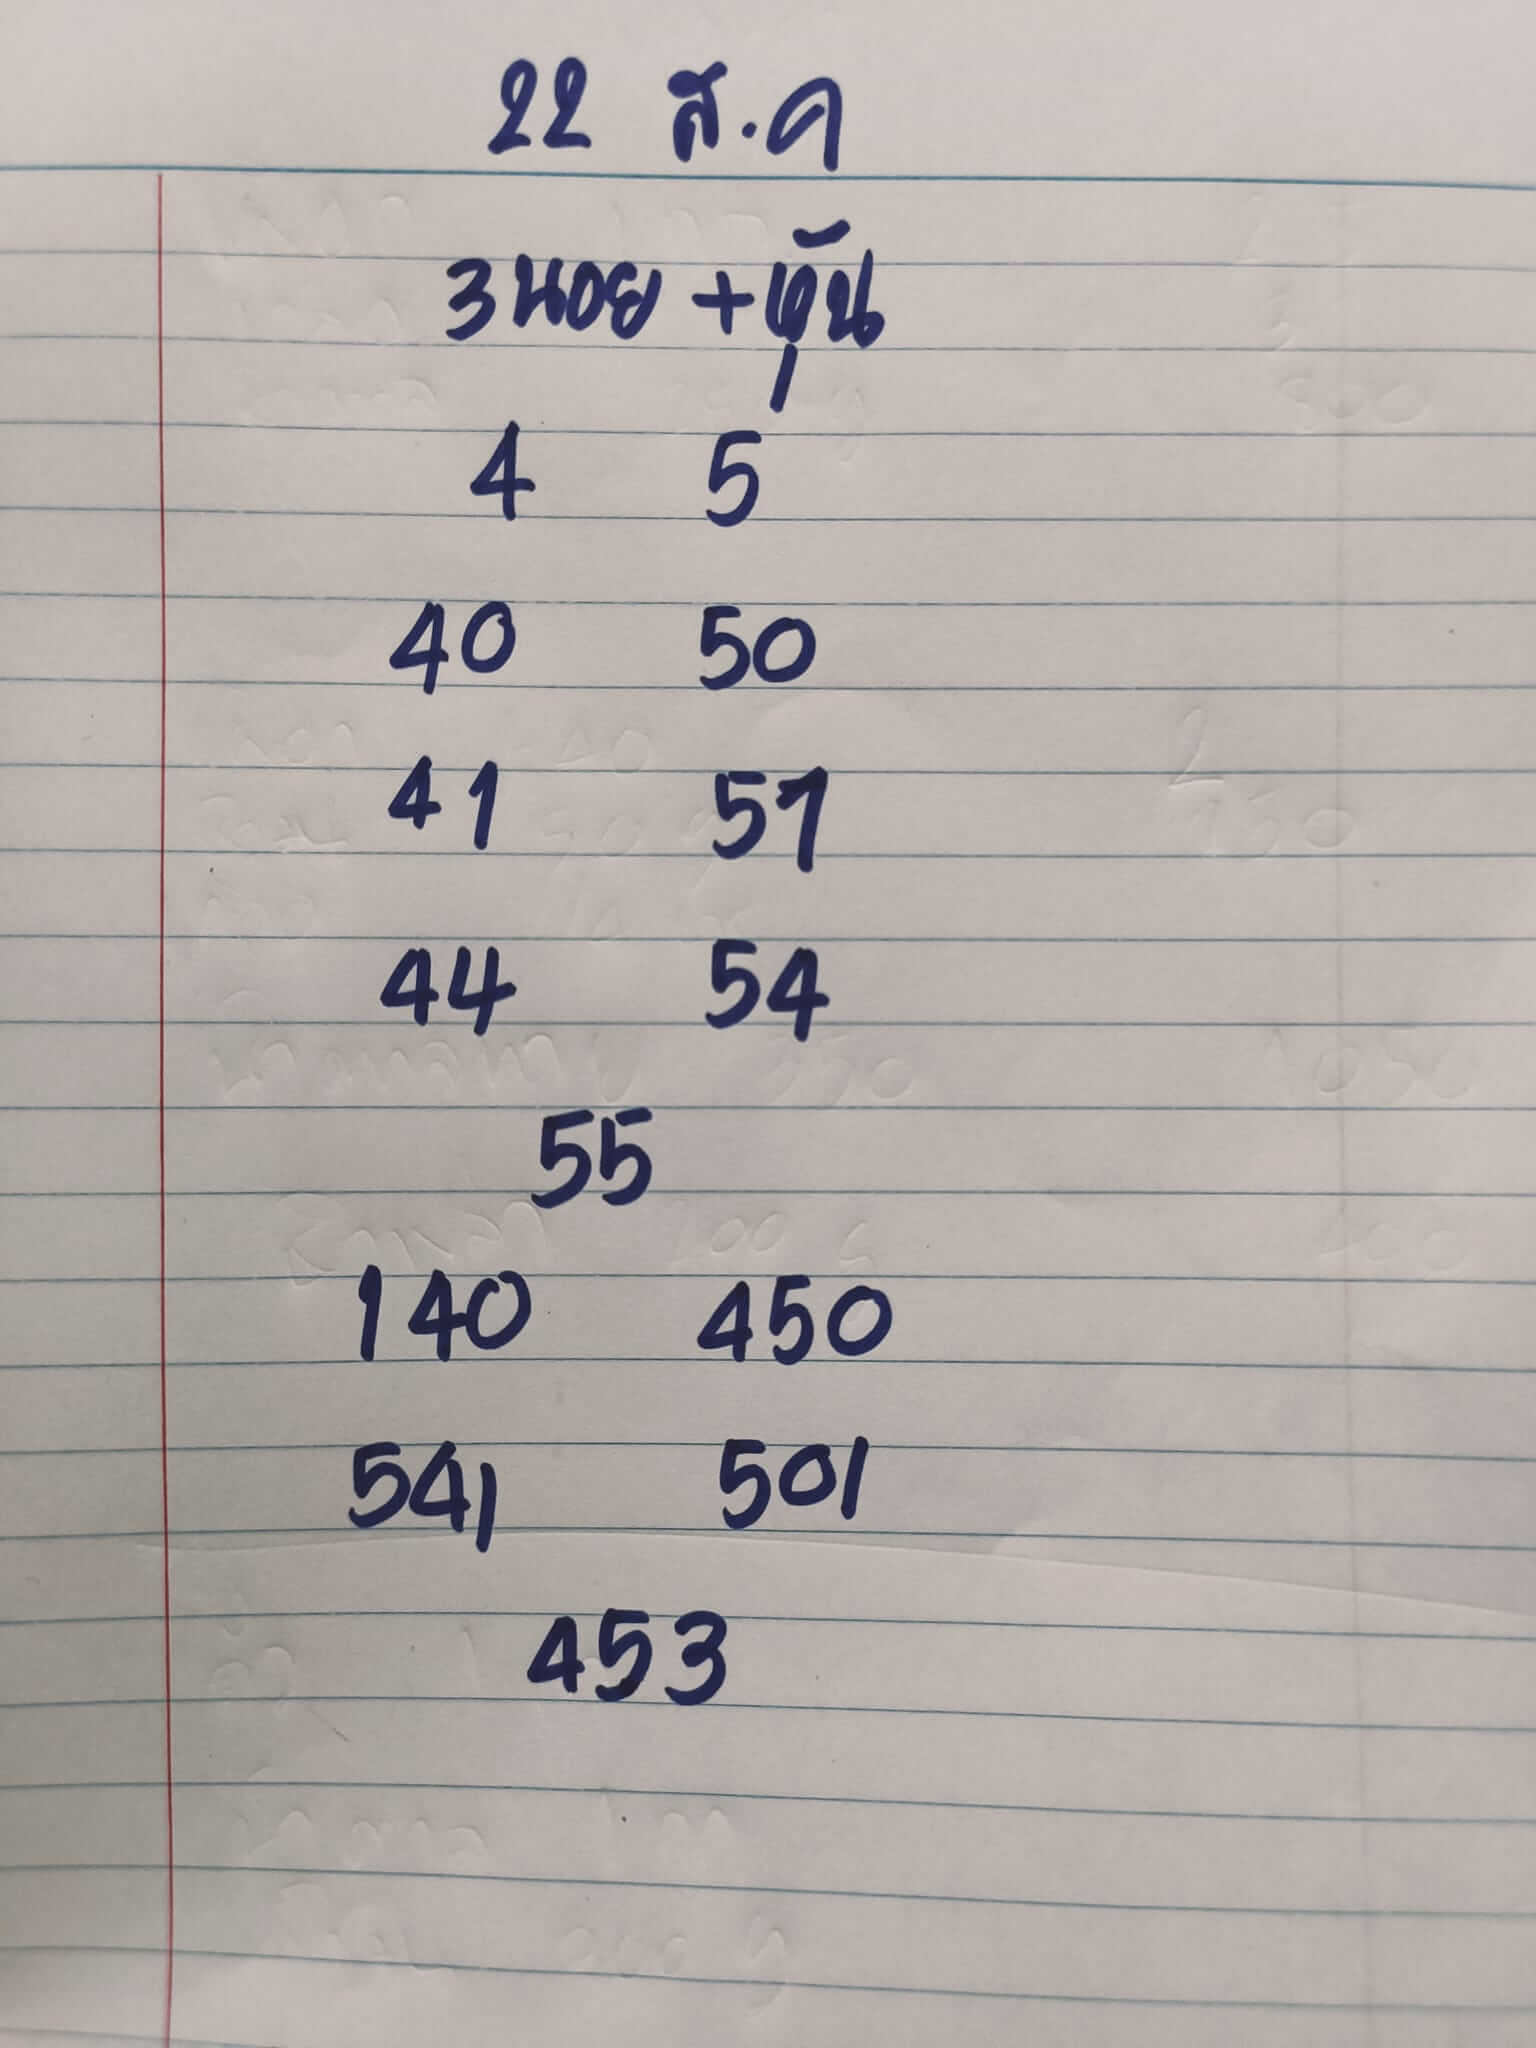 22 ส.ค
3นอย +หุ้น
4 5
40 50
41 51
44 54
55
140 450
541 501
453